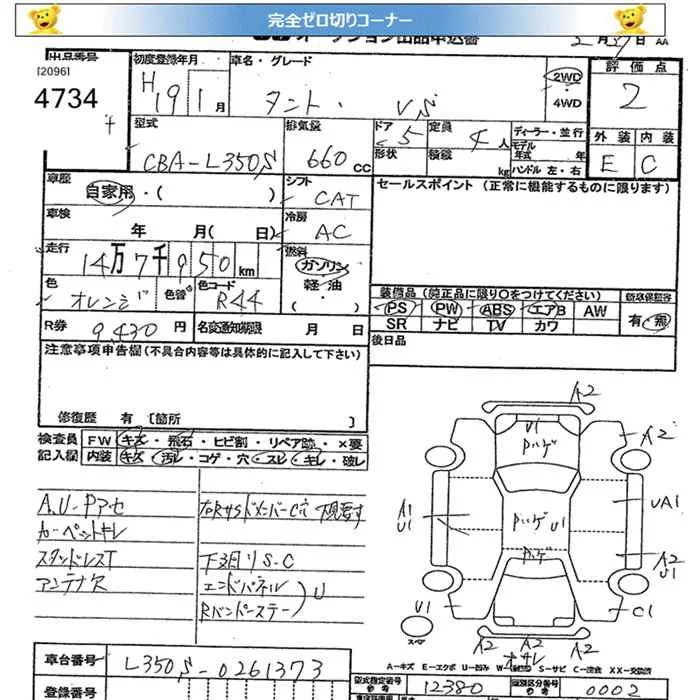 完全ゼロ切りコーナー
オークション出品申込書 2月 日 AA
出品番号 初度登録年月 車名・グレード 評価点
[2096]
4734
H19 1月 タント・ VS 2WD・4WD 2
型式 排気量 ドア 5 定員 4人 ディーラー・並行 外装 内装
CBA-L350S 660cc 形状 積載 kg モデル年式 年 ハンドル 左・右 E C
車歴 自家用・( ) シフト CAT セールスポイント (正常に機能するものに限ります)
車検 年 月( 日) 冷房 AC
走行 14万7千950km 燃料 ガソリン 軽油
色 オレンジ 色替 色コード R44 装備品 (純正品に限り○をつけてください) 新車保証書
PS PW ABS エアB AW 有・無
R券 9,430円 名変通知期限 月 日 SR ナビ TV カワ
注意事項申告欄 (不具合内容等は具体的に記入して下さい) 後日品
修復歴 有 [箇所 ]
検査員 FW キズ・飛石・ヒビ割・リペア跡・×要
記入欄 内装 キズ・汚レ・コゲ・穴・スレ・キレ・破レ
A.U-Pアセ
カーペットキレ
スタッドレスT 下廻りS.C
アンテナ欠 エンドパネル
U
A2
U1 Pハゲ A2
A1 Pハゲ U1 UA1
U1 Pハゲ A2
U1
U1 C1
スペア A2 A2 A2
A-キズ E-エクボ U-凹み S-サビ C-腐食 XX-交換済
車台番号 L350S-0261373
登録番号 型式指定番号 参考 12380 類別区分番号 参考 0002